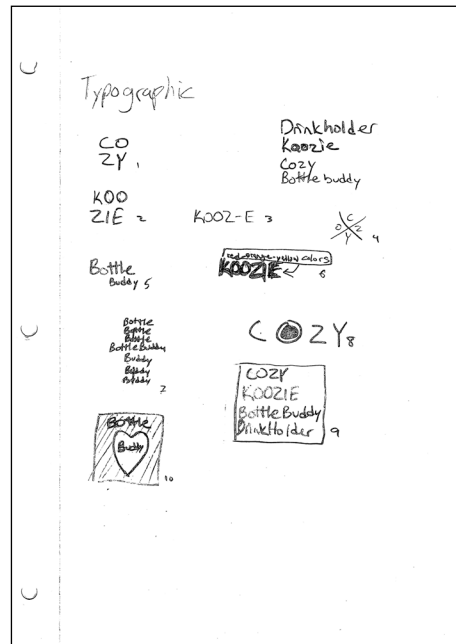 Typographic
Drinkholder
Koozie
Cozy
Bottle buddy
CO
ZY 1
KOO
ZIE 2
KOOZ-E 3
C
O Z
Y 4
Bottle
Buddy 5
red-orange-yellow colors
KOOZIE 6
Bottle
Bottle
Bottle
Bottle Buddy
Buddy
Buddy
Buddy
7
COZY 8
COZY
KOOZIE
Bottle Buddy
DrinkHolder 9
Bottle
Buddy
10